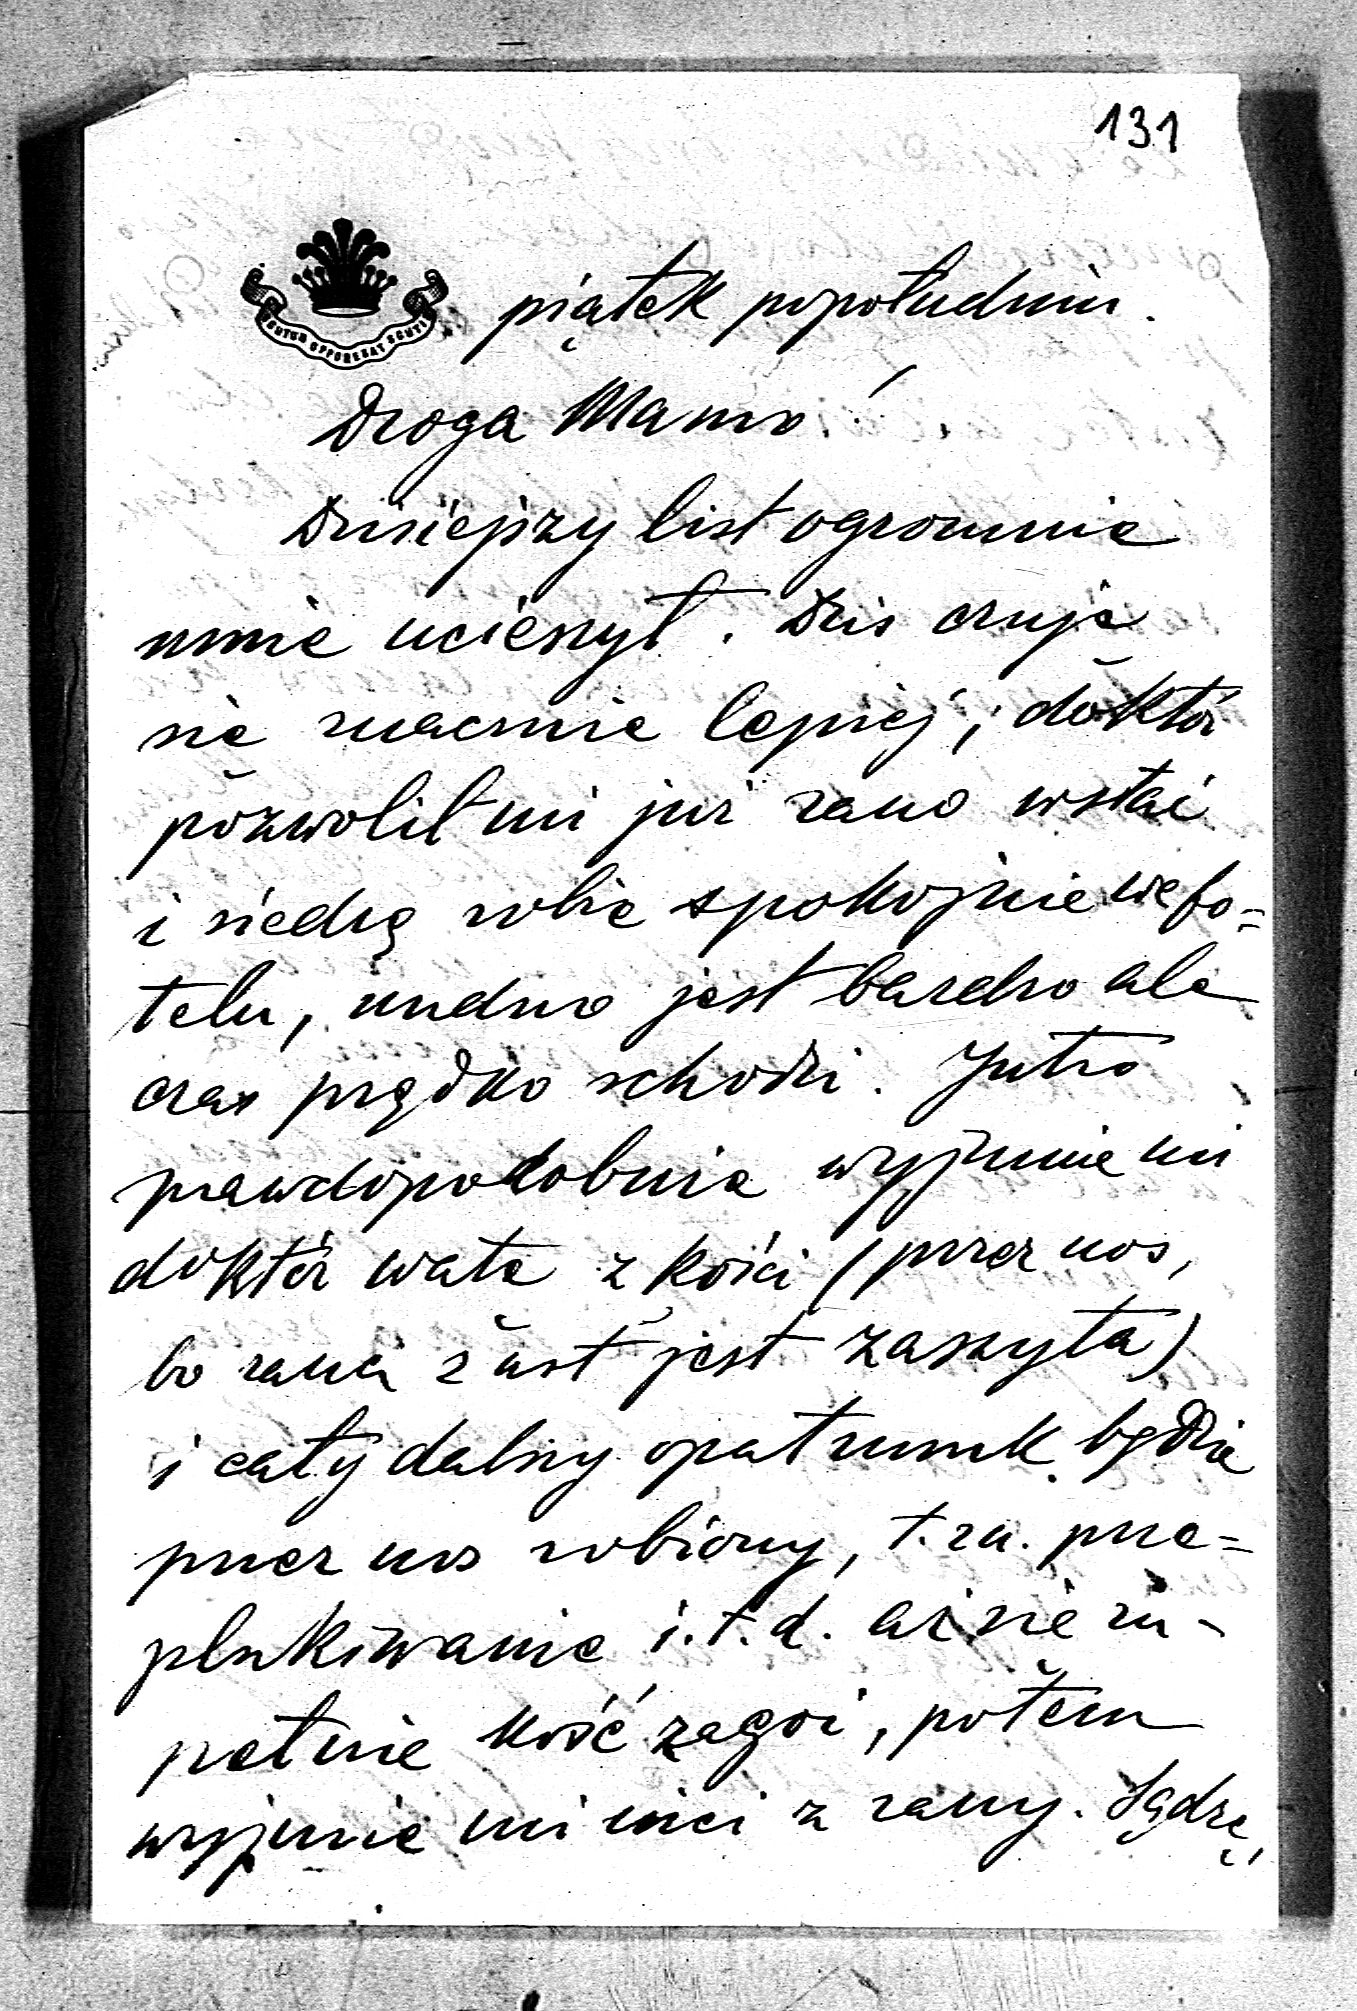 131
SCUTUM OPPONEBAT SCUTIS
piątek popołudniu.
Droga Mamo!
Dzisiejszy list ogromnie
mnie ucieszył. Dziś czuję
się znacznie lepiej; doktór
pozwolił mi już rano wstać
i siedzę sobie spokojnie w fo=
telu, nudno jest bardzo ale
czas prędko schodzi. Jutro
prawdopodobnie wyjmie mi
doktór watę z kości (przez nos,
bo rana z ust jest zaszyta)
i cały dalszy opatrunek będzie
przez nos robiony, t.zn. prze=
płukiwanie i.t.d. aż się zu-
pełnie kość zagoi, potem
wyjmie mi nici z rany. Sądzę,